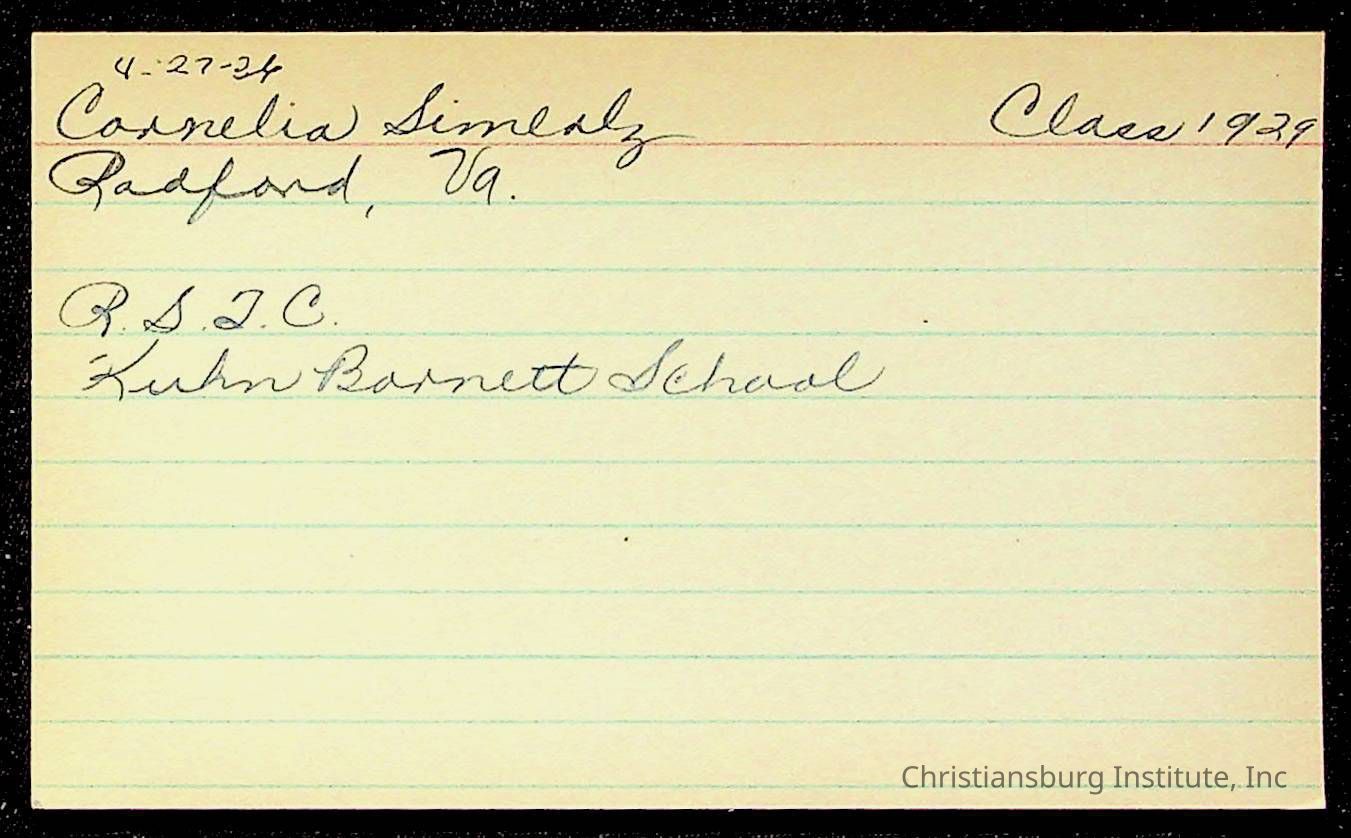 4-27-26
Cornelia Simerly Class 1929
Radford, Va.
R.S.T.C.
Kuhn Barnett School
Christiansburg Institute, Inc